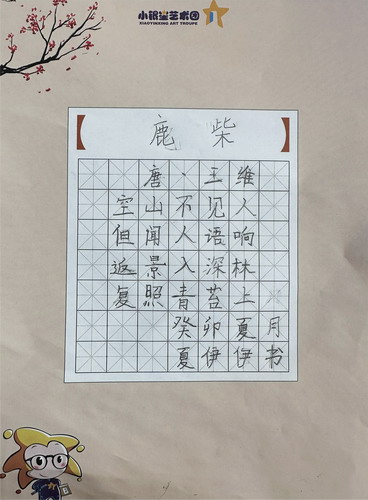 小银星艺术团
XIAOYINXING ART TROUPE
鹿柴
唐·王维
空山不见人
但闻人语响
返景入深林
复照青苔上
癸卯夏月
夏伊伊书